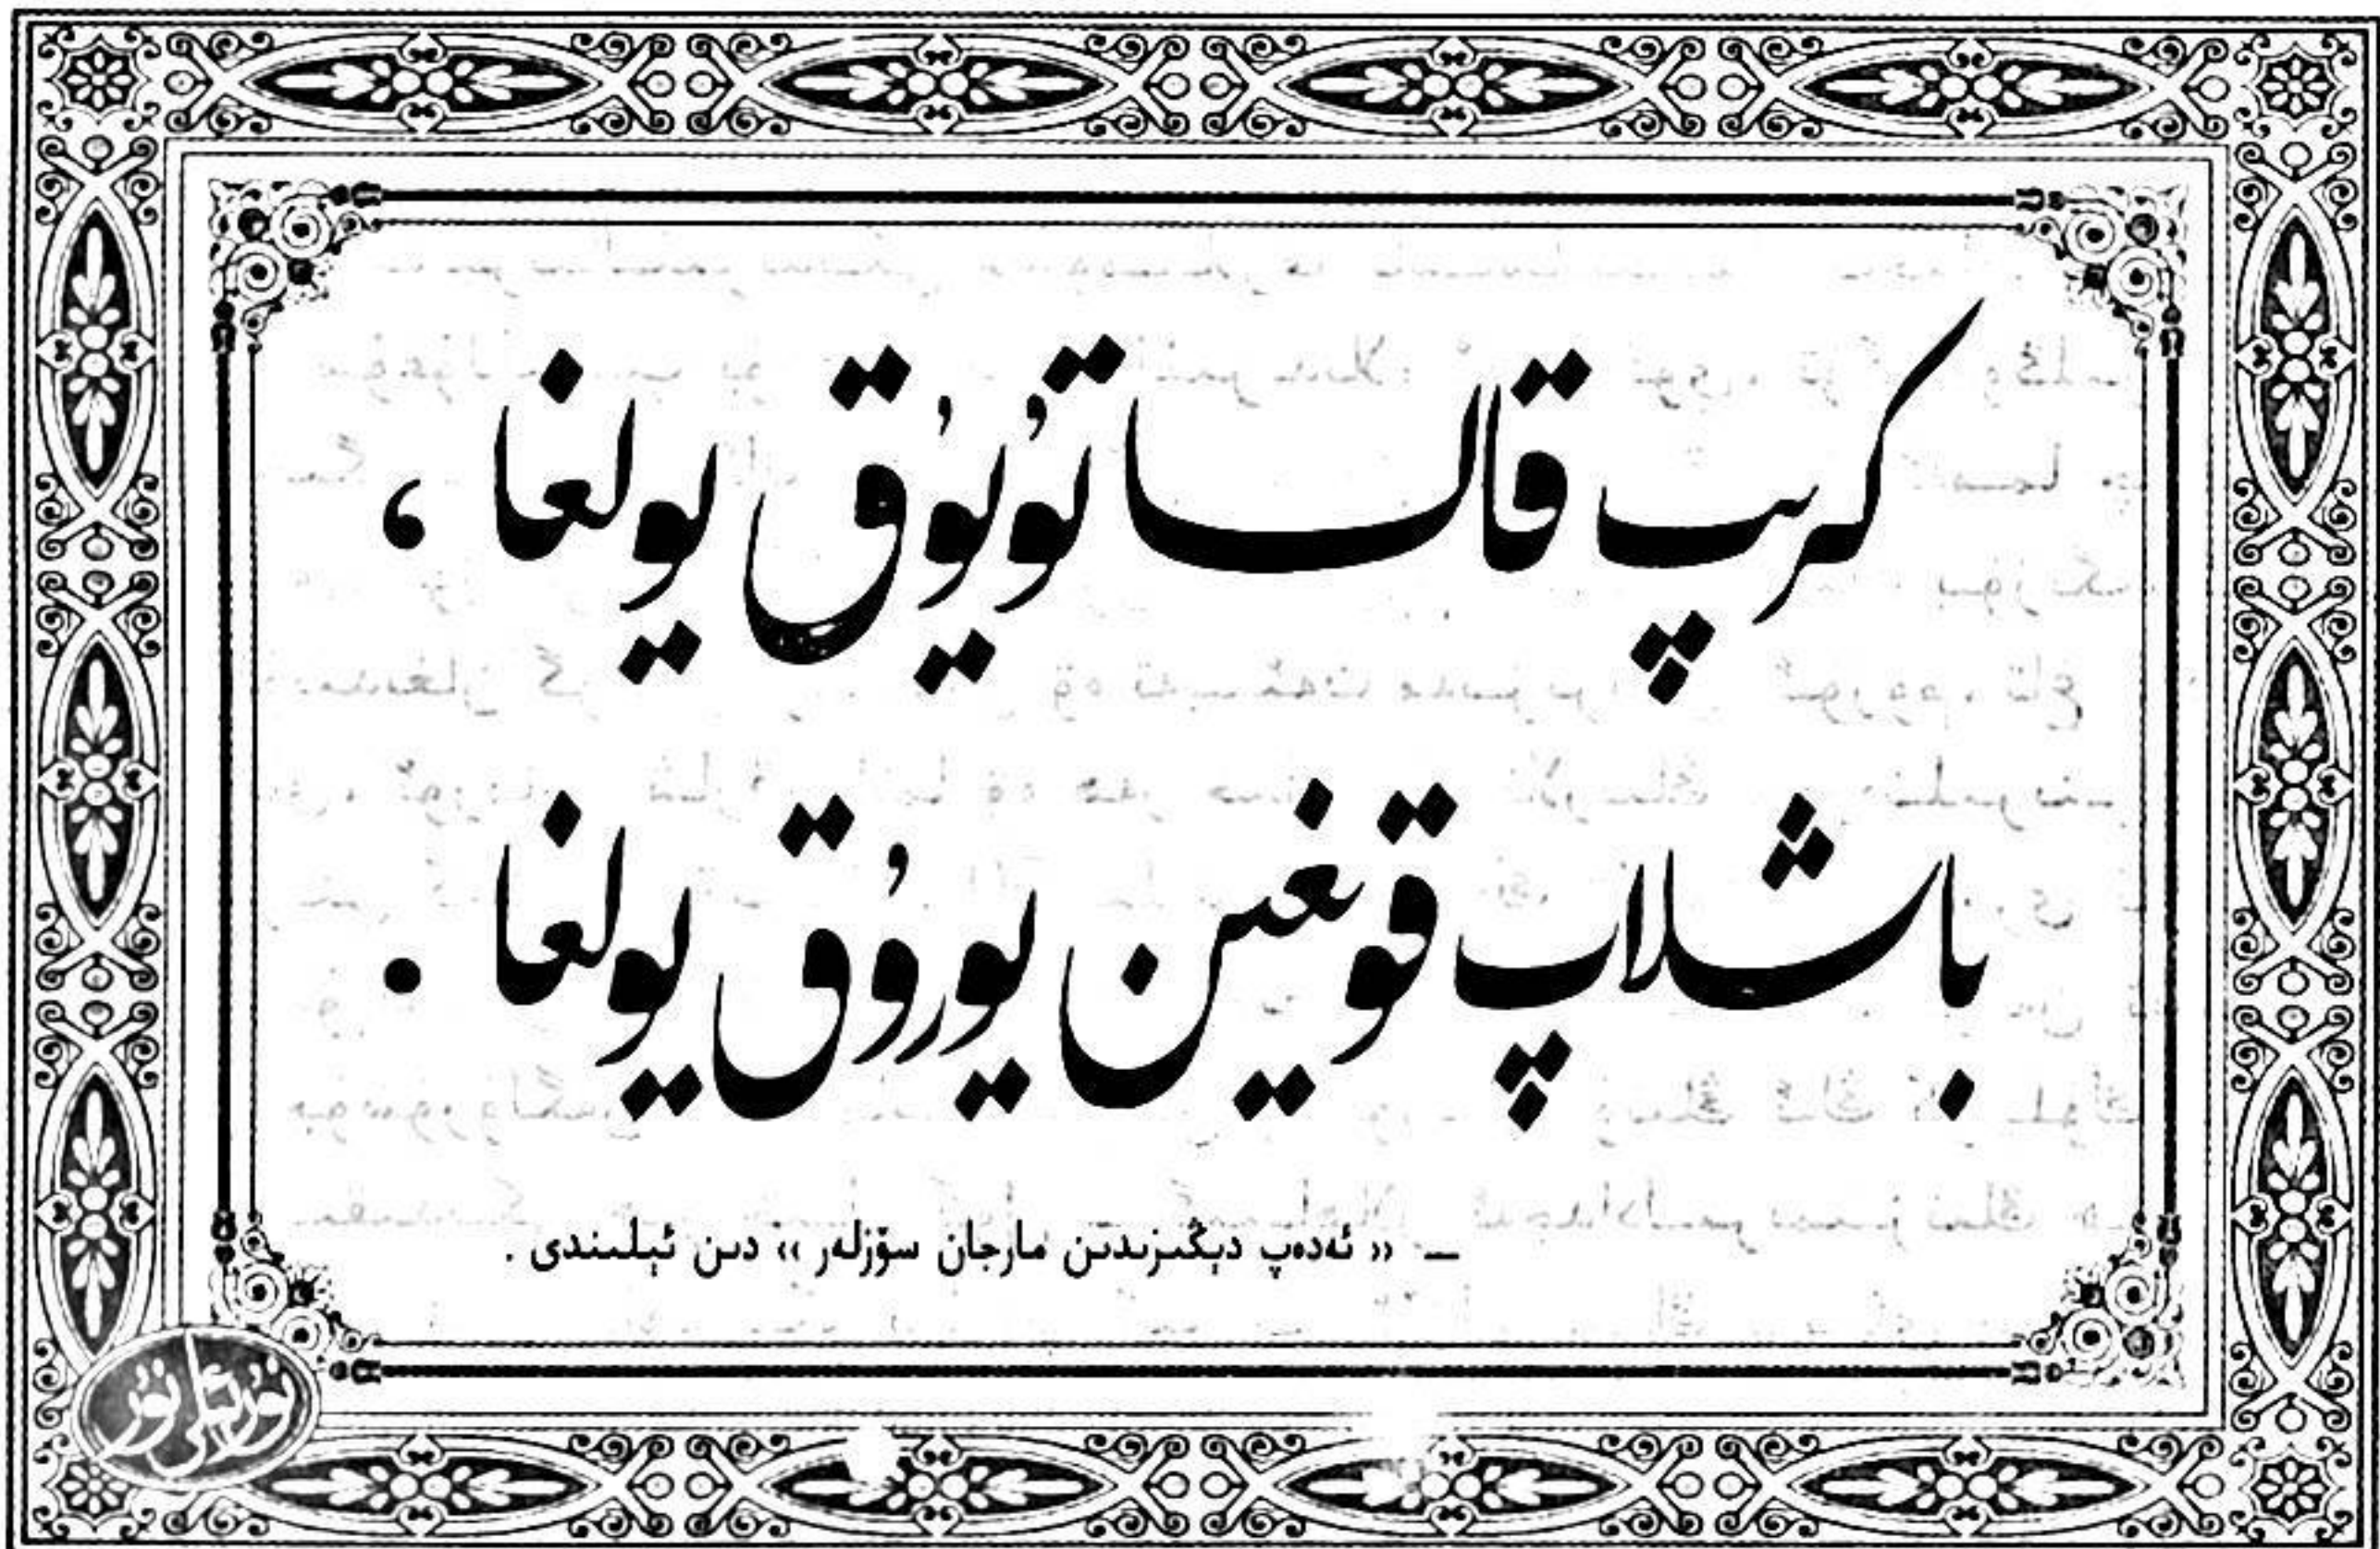 كىرىپ قالسا تۇيۇق يولغا ،
باشلاپ قويغىن يورۇق يولغا .
— « ئەدەپ دېڭىزىدىن مارجان سۆزلەر » دىن ئېلىندى .